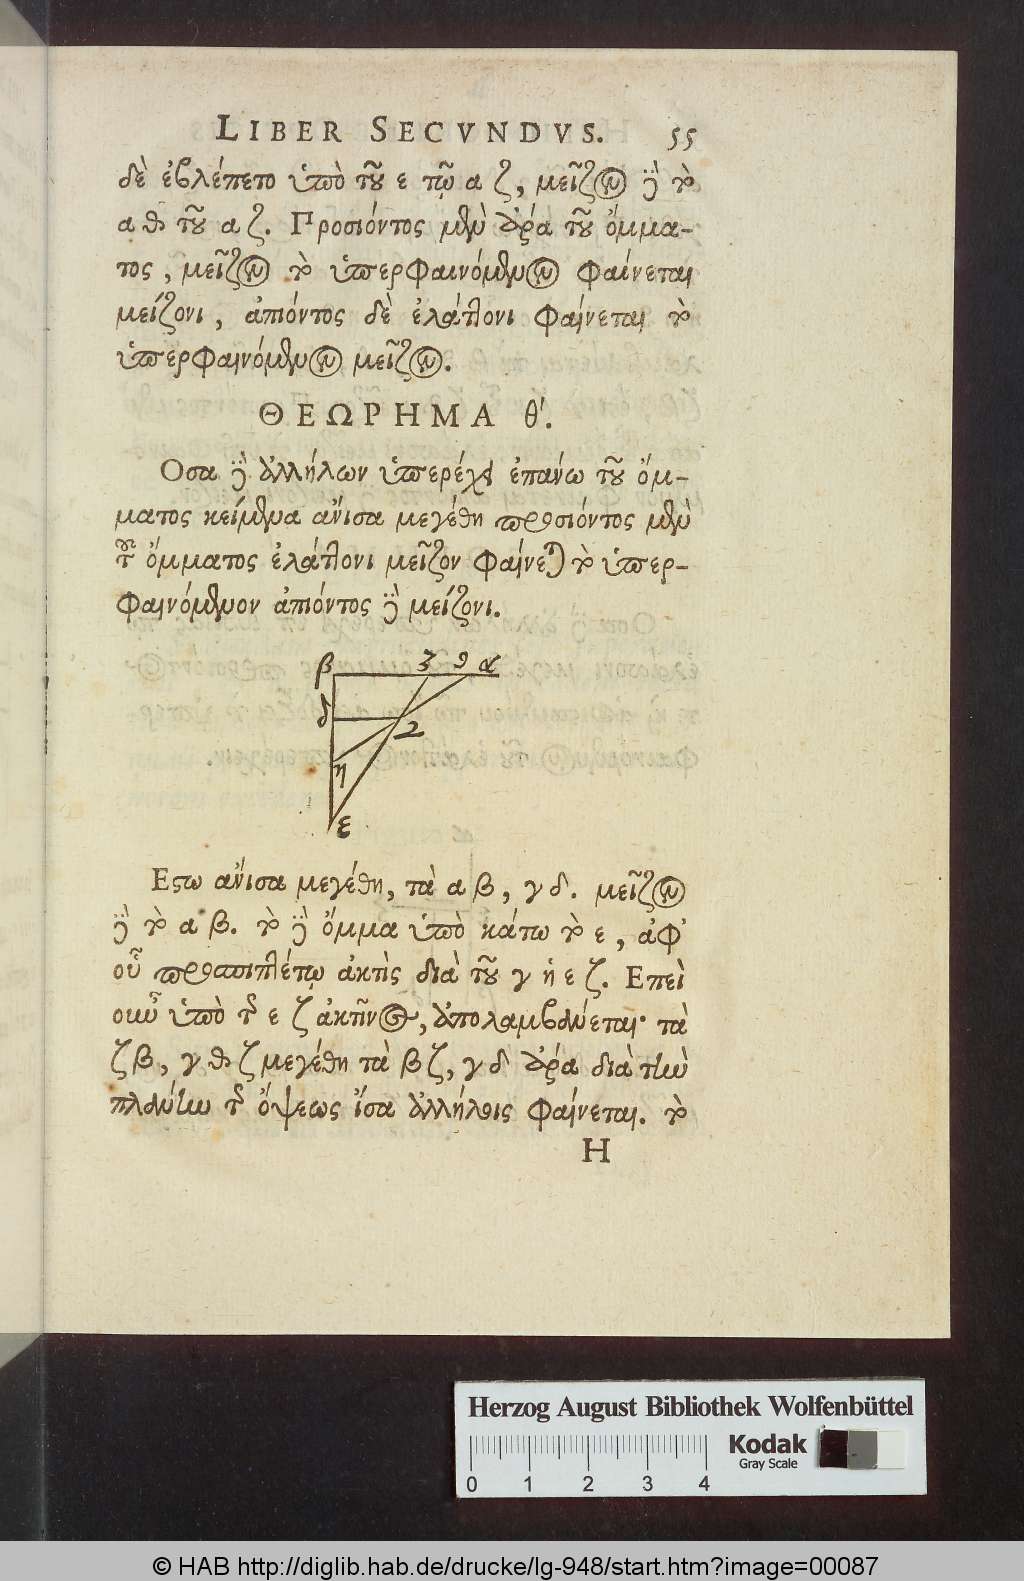 LIBER SECVNDVS. 55
δὲ ἐβλέπετο ὑπὸ τοῦ ε τῷ α ζ, μεῖζον δὲ τὸ
α θ τοῦ α ζ. Προσιόντος μὲν ἄρα τοῦ ὄμμα-
τος, μεῖζον τὸ ὑπερφαινόμενον φαίνεται
μείζονι, ἀπιόντος δὲ ἐλάττονι φαίνεται τὸ
ὑπερφαινόμενον μεῖζον.
ΘΕΩΡΗΜΑ θ΄.
Οσα δὲ ἀλλήλων ὑπερέχει ἐπάνω τοῦ ὄμ-
ματος κείμενα ἄνισα μεγέθη προσιόντος μὲν
τοῦ ὄμματος ἐλάττονι μεῖζον φαίνεται τὸ ὑπερ-
φαινόμενον ἀπιόντος δὲ μείζονι.
β ζ θ α
δ γ
η
ε
Εστω ἄνισα μεγέθη, τὰ α β, γ δ. μεῖζον
δὲ τὸ α β. τὸ δὲ ὄμμα ὑπὸ κάτω τὸ ε, ἀφ᾽
οὗ προσπιπλέτω ἀκτὶς διὰ τοῦ γ ἡ ε ζ. Επεὶ
οὖν ὑπὸ τῆς ε ζ ἀκτῖνος, ἀπολαμβάνεται τὰ
ζ β, γ δ μεγέθη τὰ β ζ, γ δ ἄρα διὰ τὴν
πλάνην τῆς ὄψεως ἴσα ἀλλήλοις φαίνεται. τὸ
H
Herzog August Bibliothek Wolfenbüttel
Kodak
Gray Scale
0 1 2 3 4
© HAB http://diglib.hab.de/drucke/lg-948/start.htm?image=00087